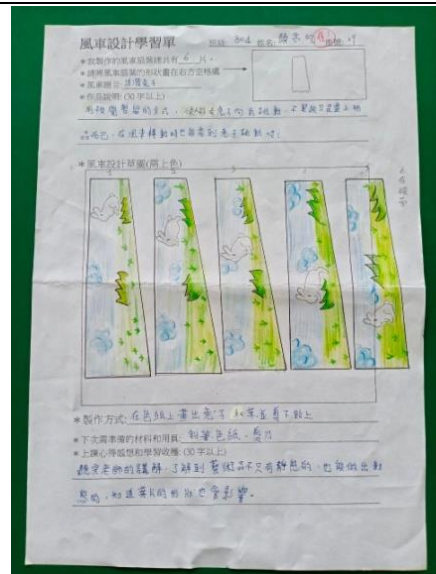 風車設計學習單 班級: 804 姓名: 座號: 09
*我製作的風車扇葉總共有 6 片。
*請將風車扇葉的形狀畫在右方空格處
*風車題目:
*作品說明: (30 字以上)
品而已,在風車轉動時也能看到兔子跳動。
*風車設計草圖(需上色)
1 2 3 4 5
*製作方式: 在色紙上畫出兔子和草並剪下貼上
*下次需準備的材料和用具: 剩餘色紙、剪刀
*上課心得感想和學習收穫: (30 字以上)
聽完老師的講解,了解到藝術品不只有靜態的,也能做出動
態的,知道葉片的形狀也會影響。